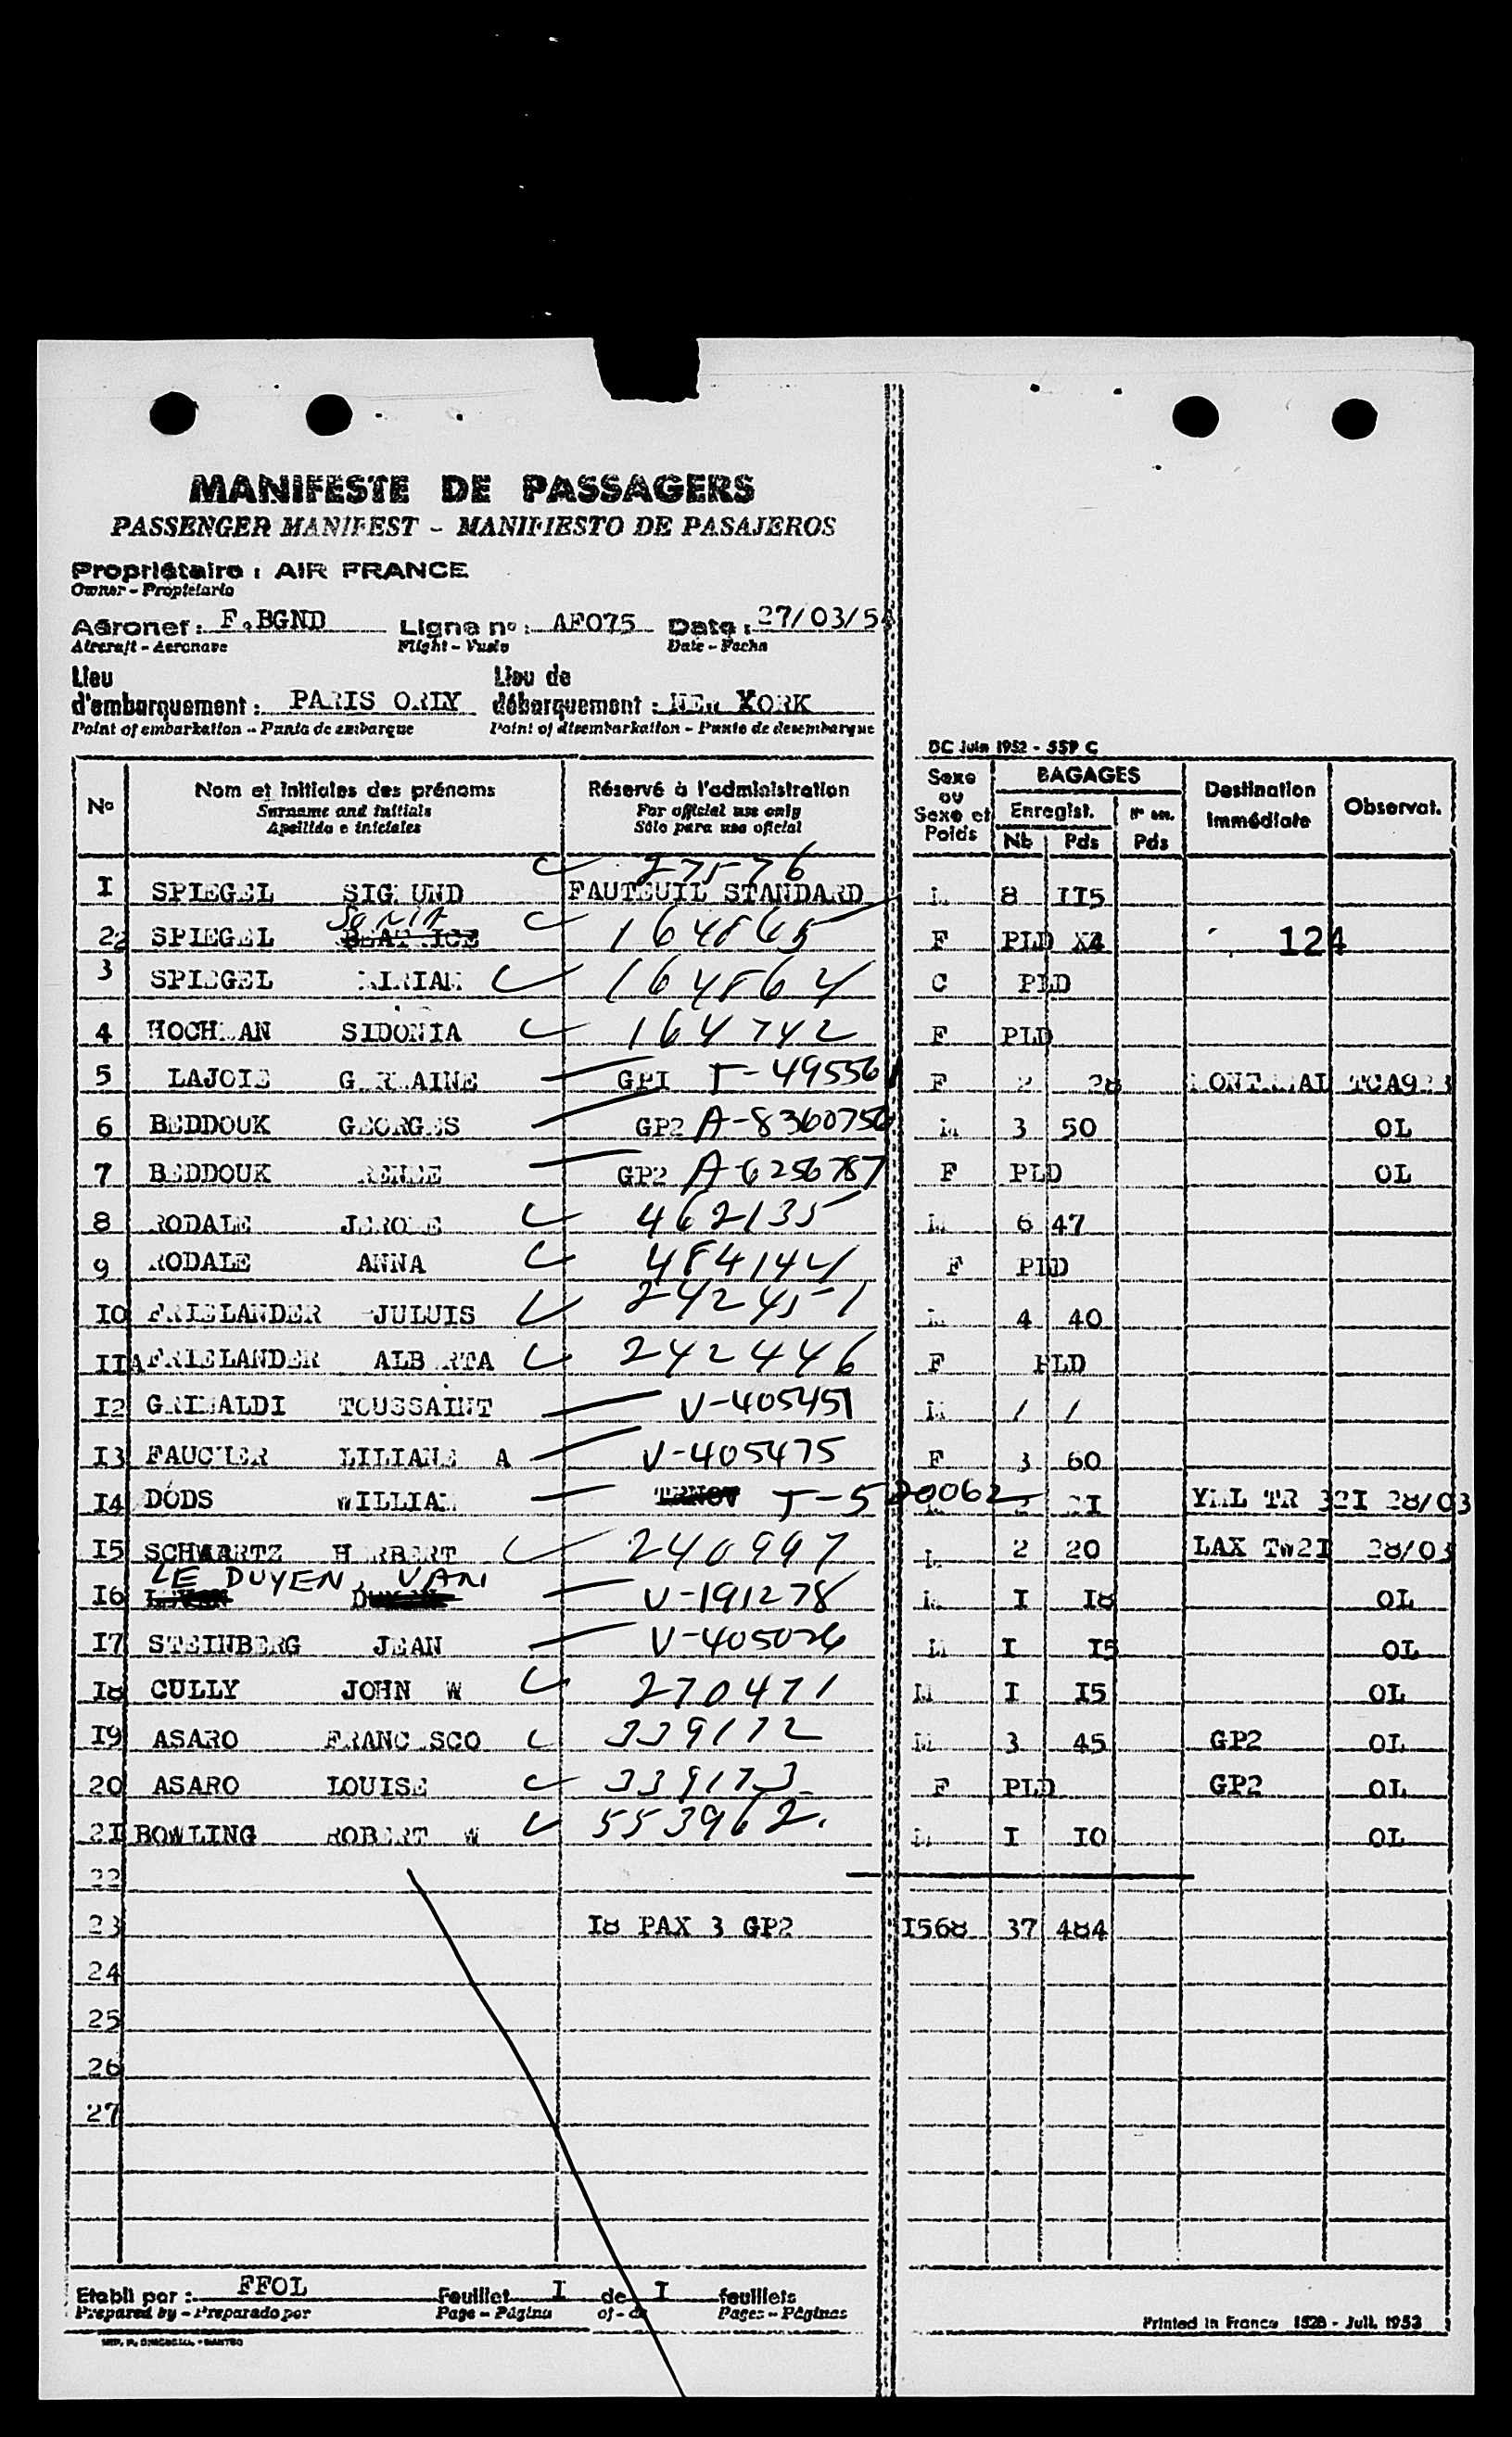 MANIFESTE DE PASSAGERS
PASSENGER MANIFEST - MANIFIESTO DE PASAJEROS
Propriétaire : AIR FRANCE
Owner - Propietario
Aéronef : F.BGND Ligne n° : AF075 Date : 27/03/54
Aircraft - Aeronave Flight - Vuelo Date - Fecha
Lieu d'embarquement : PARIS ORLY Lieu de débarquement : NEW YORK
Point of embarkation - Punto de embarque Point of disembarkation - Punto de desembarque
DC Juin 1952 - 559 C
N° Nom et initiales des prénoms Réservé à l'administration Sexe ou Sexe et Poids BAGAGES Destination immédiate Observat.
Surname and initials For official use only Enregist. N° en.
Apellido e iniciales Sólo para uso oficial Nb Pds Pds
27576
I SPIEGEL SIG UND FAUTEUIL STANDARD 8 II5
SONIA
22 SPIEGEL 164865 F PLD X4 124
3 SPIEGEL MIRIAM 164864 C PLD
4 HOCHMAN SIDONIA 164742 F PLD
5 LAJOIE GERMAINE GPI T-495561 F 2 28 MONTREAL
6 BEDDOUK GEORGES GP2 A-8360756 M 3 50 OL
7 BEDDOUK RENEE GP2 A-6256787 F PLD OL
8 RODALE JEROME 462135 M 6 47
9 RODALE ANNA 484144 F PLD
IO FRIELANDER JULUIS 242451 M 4 40
IIA FRIELANDER ALBERTA 242446 F PLD
I2 GRIMALDI TOUSSAINT V-405451 M / /
I3 FAUCHER LILIANE A V-405475 F 3 60
I4 DODS WILLIAM TRNOV T-520062 2 2I YUL TR 32I 28/03
I5 SCHWARTZ HERBERT 240997 M 2 20 LAX TW2I 28/03
LE DUYEN, VAN
I6 V-191278 M I I8 OL
I7 STEINBERG JEAN V-405026 M I I5 OL
I8 CULLY JOHN W 270471 M I I5 OL
I9 ASARO FRANCESCO 339172 M 3 45 GP2 OL
20 ASARO LOUISE 339173 F PLD GP2 OL
2I BOWLING ROBERT W 553962. M I IO OL
22
23 I8 PAX 3 GP2 I568 37 484
24
25
26
27
Etabli par : FFOL Feuillet I de I feuillets
Prepared by - Preparado por Page - Página of - de Pages - Páginas
Printed in France 1528 - Juil. 1953